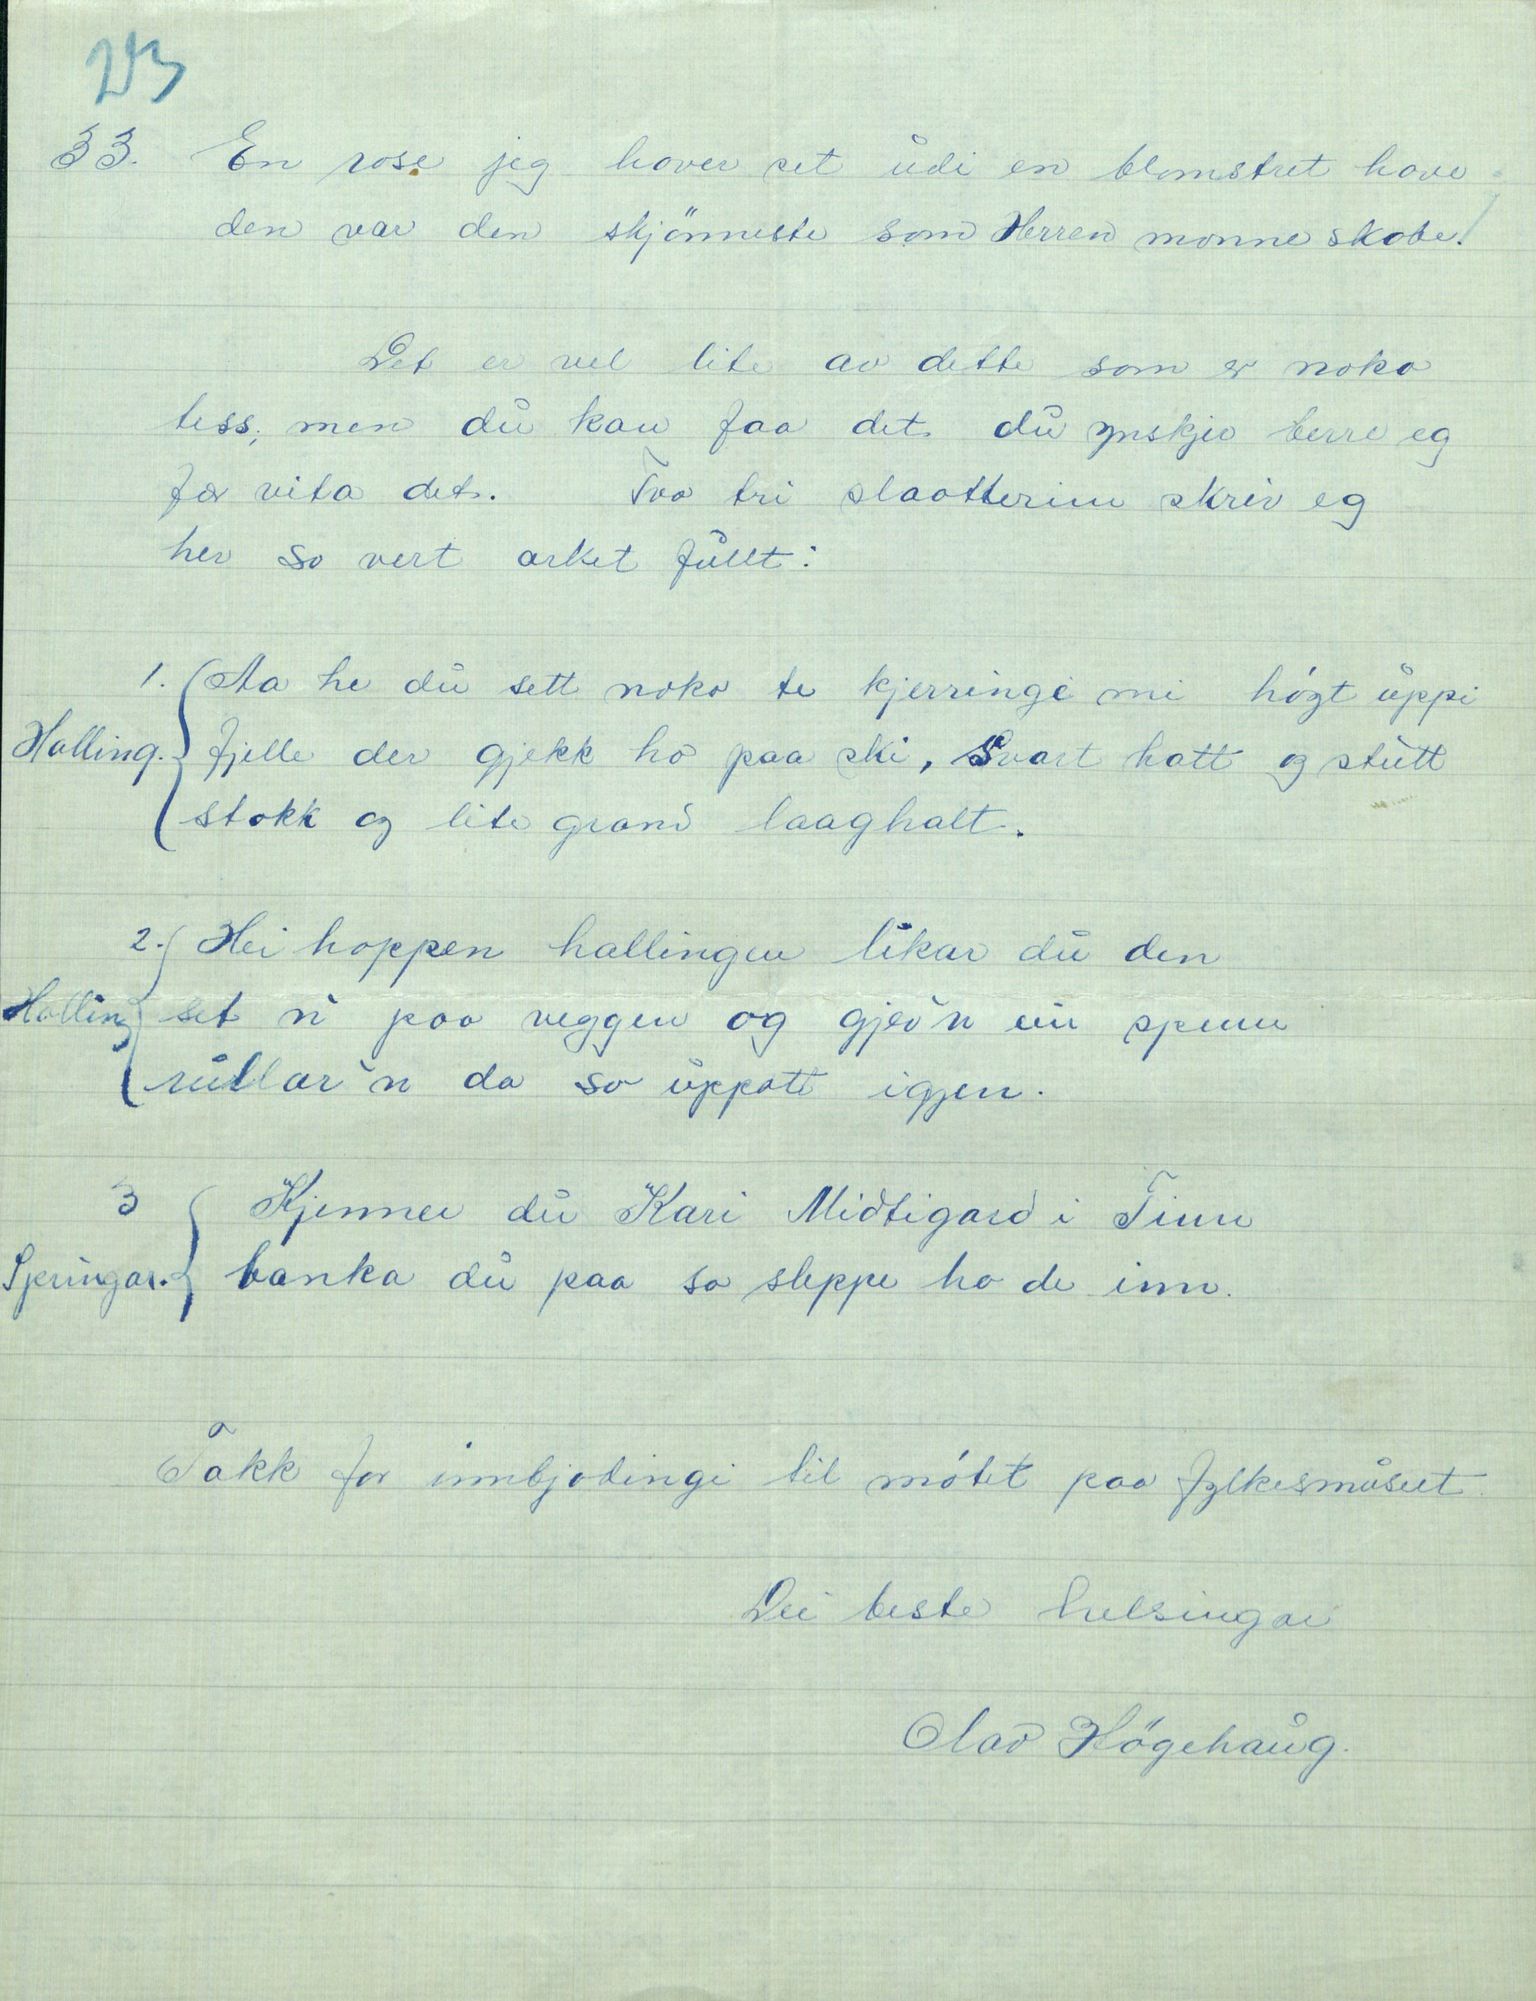 213
33. En rose jeg haver set udi en blomstret have
den var den skjönneste som Herren monne skabe!
Det er vel lite av dette som er noko
tess, men du kan faa det du ynskjer berre eg
fær vita det. Tvo tri slaatterim skriv eg
her so vert arket fullt:
1. Aa he du sett noko te kjerringi mi högt uppi
Halling. fjelle der gjekk ho paa ski, Svart hatt og stutt
stokk og lite grand laaghalt.
2. Hei hoppen hallingen likar du den
Halling set 'n paa veggen og gjev'n ein spenn
rullar'n da so uppatt igjen.
3 Kjenner du Kari Midtigard i Tinn
Springar. banka du paa so sleppe ho de inn.
Takk for innbjodingi til mötet paa fylkesmuseet.
Dei beste helsingar
Olav Högehaug.